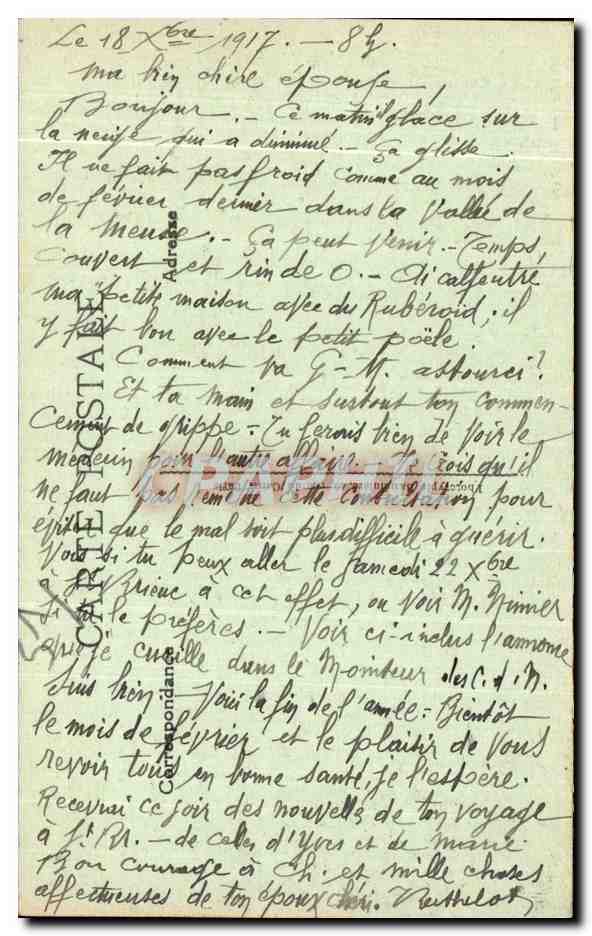 Le 18 Xbre 1917. — 8 h.
Ma bien chère épouse,
Bonjour. — Ce matin glace sur
la neige qui a diminué. — Ça glisse.
Il ne fait pas froid comme au mois
de février dernier dans la vallée de
la Meuse. — Ça peut venir. — Temps
couvert et rien de O. — Ai calfeutré
ma petite maison avec du Rubéroid, il
y fait bon avec le petit poële.
Comment va G-M.
Et ta main et surtout ton commen-
cement de grippe = Tu ferais bien de voir le
médecin pour l'autre affaire. Je crois qu'il
ne faut pas remettre cette consultation pour
éviter que le mal soit plus difficile à guérir.
Vois si tu peux aller le samedi 22 Xbre
à St Brieuc à cet effet, ou voir M.
si tu le préfères. — Voir ci-inclus l'annonce
que je cueille dans le Moniteur des C. d. N.
Suis bien — Voici la fin de l'année = Bientôt
le mois de février et le plaisir de vous
revoir tous en bonne santé, je l'espère.
Recevrai ce soir des nouvelles de ton voyage
à St. — de celles d'Yves et de Marie
Bon courage à Ch. et mille choses
affectueuses de ton époux chéri. Berthelot
CARTE POSTALE
Correspondance
Adresse
CPARAMA